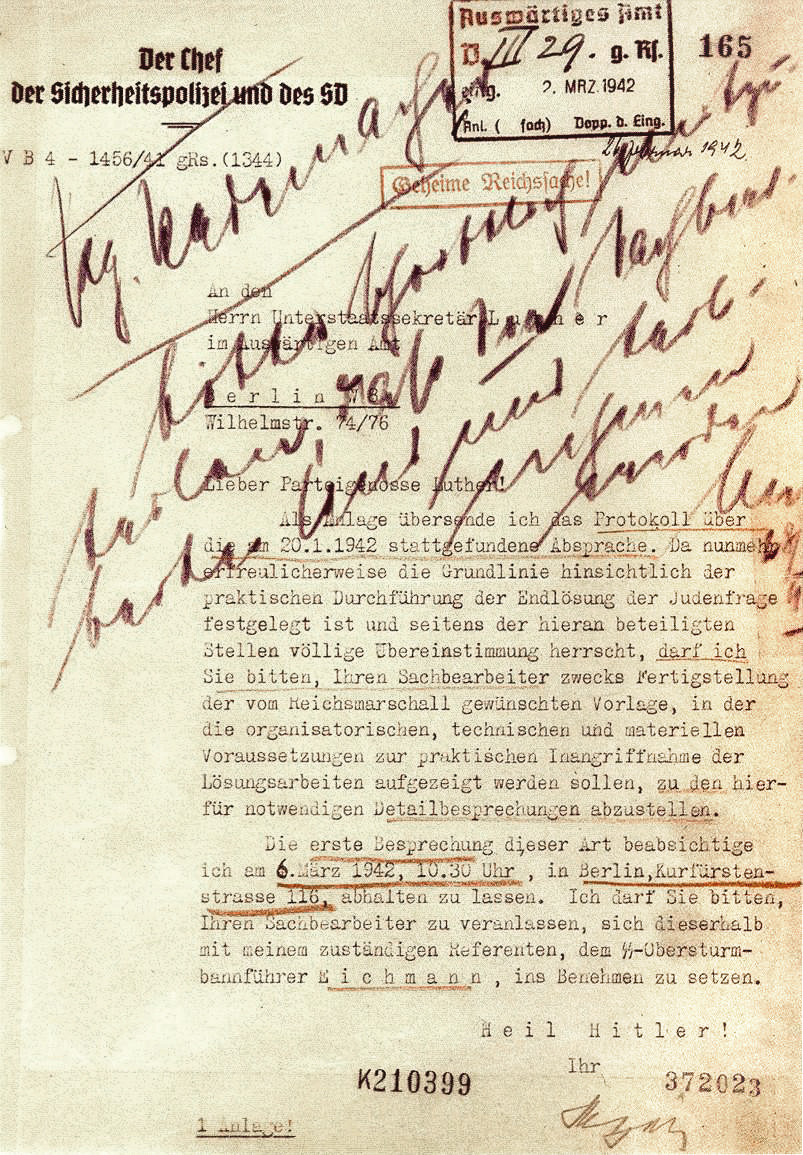 Der Chef
der Sicherheitspolizei und des SD
Auswärtiges Amt
D III 29. g. Rs.
eing. 2. MRZ. 1942
Anl. ( fach) Dopp. d. Eing.
165
V B 4 - 1456/41 gRs.(1344)
26. Februar 1942
Geheime Reichssache!
An den
Herrn Unterstaatssekretär L u t h e r
im Auswärtigen Amt
B e r l i n W 8
Wilhelmstr. 74/76
Lieber Parteigenosse Luther!
Als Anlage übersende ich das Protokoll über
die am 20.1.1942 stattgefundene Absprache. Da nunmehr
erfreulicherweise die Grundlinie hinsichtlich der
praktischen Durchführung der Endlösung der Judenfrage
festgelegt ist und seitens der hieran beteiligten
Stellen völlige Übereinstimmung herrscht, darf ich
Sie bitten, Ihren Sachbearbeiter zwecks Fertigstellung
der vom Reichsmarschall gewünschten Vorlage, in der
die organisatorischen, technischen und materiellen
Voraussetzungen zur praktischen Inangriffnahme der
Lösungsarbeiten aufgezeigt werden sollen, zu den hier-
für notwendigen Detailbesprechungen abzustellen.
Die erste Besprechung dieser Art beabsichtige
ich am 6.März 1942, 10.30 Uhr , in Berlin,Kurfürsten-
strasse 116, abhalten zu lassen. Ich darf Sie bitten,
Ihren Sachbearbeiter zu veranlassen, sich dieserhalb
mit meinem zuständigen Referenten, dem SS-Obersturm-
bannführer E i c h m a n n , ins Benehmen zu setzen.
H e i l H i t l e r !
Ihr
K210399
372023
1 Anlage!